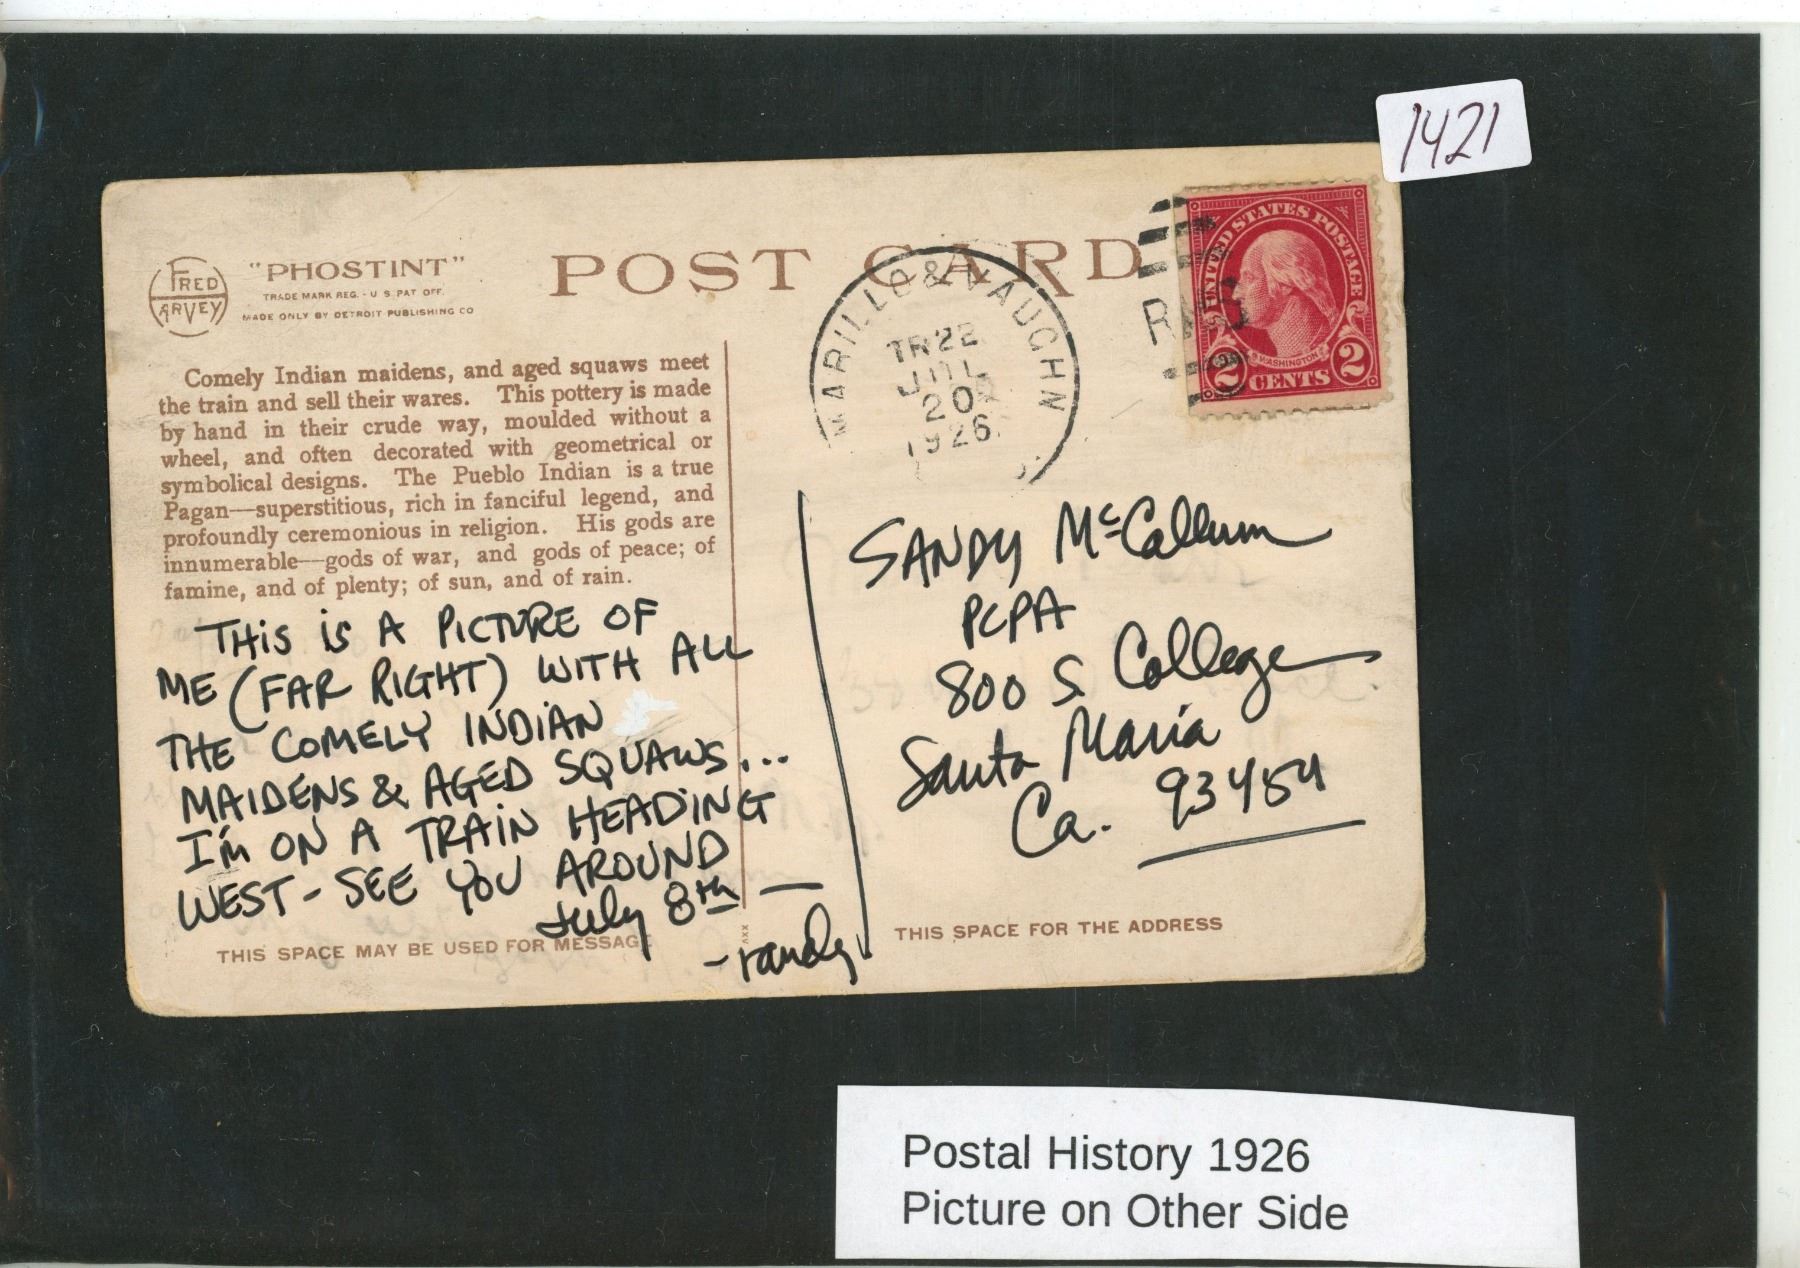 1421
FRED
HARVEY
"PHOSTINT"
TRADE MARK REG. - U S PAT OFF.
MADE ONLY BY DETROIT PUBLISHING CO
POST CARD
MARILLO & VAUGHN
TR 22
JUL
20
1926
RMS
UNITED STATES POSTAGE
WASHINGTON
2 CENTS 2
Comely Indian maidens, and aged squaws meet
the train and sell their wares. This pottery is made
by hand in their crude way, moulded without a
wheel, and often decorated with geometrical or
symbolical designs. The Pueblo Indian is a true
Pagan—superstitious, rich in fanciful legend, and
profoundly ceremonious in religion. His gods are
innumerable—gods of war, and gods of peace; of
famine, and of plenty; of sun, and of rain.
THIS IS A PICTURE OF
ME (FAR RIGHT) WITH ALL
THE COMELY INDIAN
MAIDENS & AGED SQUAWS...
I'm ON A TRAIN HEADING
WEST - SEE YOU AROUND
July 8th —
- randy
THIS SPACE MAY BE USED FOR MESSAGE
XXV
SANDY McCallum
PCPA
800 S College
Santa Maria
Ca. 93454
THIS SPACE FOR THE ADDRESS
Postal History 1926
Picture on Other Side